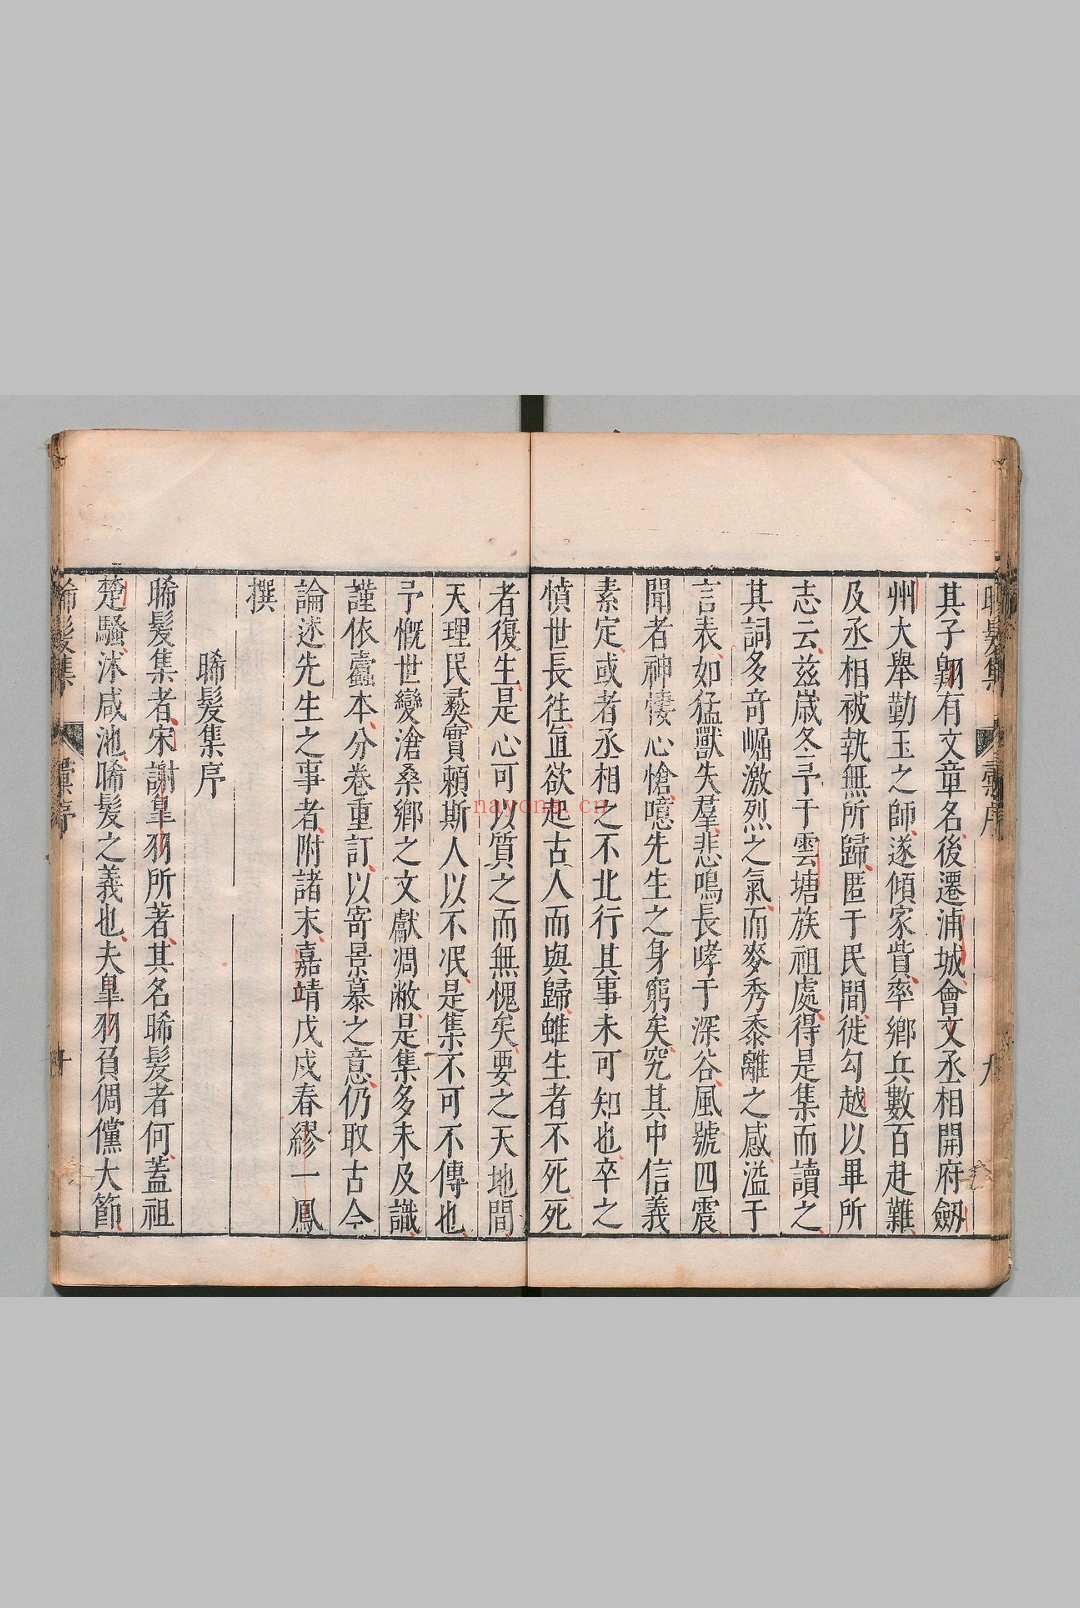 其子翺有文章名後遷浦城會文丞相開府劒
州大舉勤王之師遂傾家貲率鄉兵數百赴難
及丞相被執無所歸匿于民間徙勾越以畢所
志云茲嵗冬予于雲塘族祖處得是集而讀之
其詞多奇崛激烈之氣而麥秀黍離之感溢于
言表如猛獸失羣悲鳴長哮于深谷風號四震
聞者神悽心愴噫先生之身窮矣究其中信義
素定或者丞相之不北行其事未可知也卒之
憤世長徃直欲起古人而與歸雖生者不死死
者復生是心可以質之而無愧矣要之天地間
天理民彝實頼斯人以不泯是集不可不傳也
予慨世變滄桑鄉之文獻凋敝是集多未及識
謹依蠧本分卷重訂以寄景慕之意仍取古今
論述先生之事者附諸末嘉靖戊戌春繆一鳳
撰
晞髮集序
晞髮集者宋謝臯羽所著其名晞髮者何蓋祖
楚騷沐咸池晞髮之義也夫臯羽負倜儻大節
nayona.cn